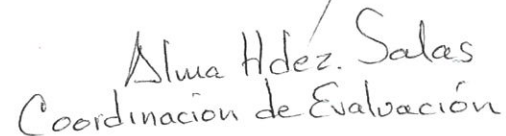 Alma Hdéz. Salas
Coordinación de Evaluación